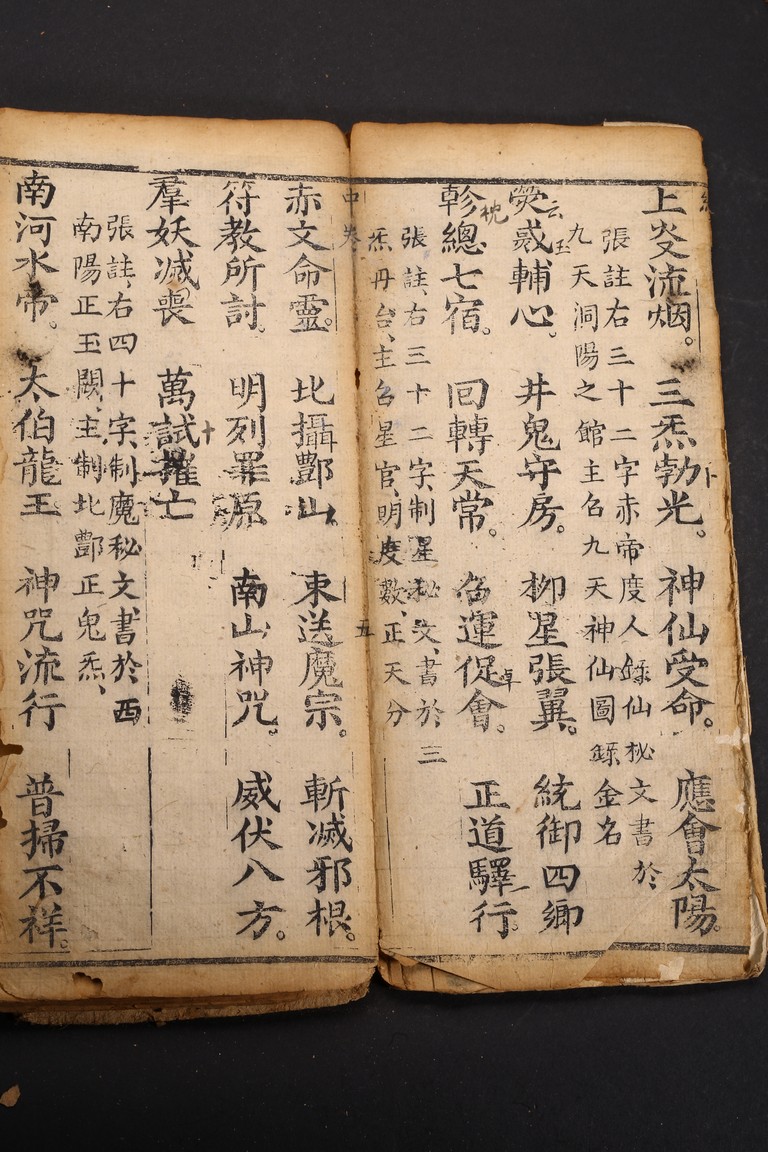 上炎流烟。　三炁勃光。　神仙受命。　應會太陽。
張註右三十二字赤帝度人錄仙秘文書於
九天洞陽之館主召九天神仙圖錄金名
熒惑輔心。　井鬼守房。　柳星張翼。　統御四鄉
軫總七宿。　回轉天常。　召運促會。　正道驛行。
張註、右三十二字、制星秘文、書於三
炁丹台、主召星官、明度數、正天分
中卷　五
赤文命靈。　北攝酆山。　束送魔宗。　斬滅邪根。
符教所討。　明列罪原　南山神咒。　威伏八方。
羣妖滅喪　萬試摧亡
張註、右四十字、制魔秘文、書於西
南陽正玉闕、主制北酆正鬼炁、
南河水帝。　太伯龍王　神咒流行　普掃不祥。